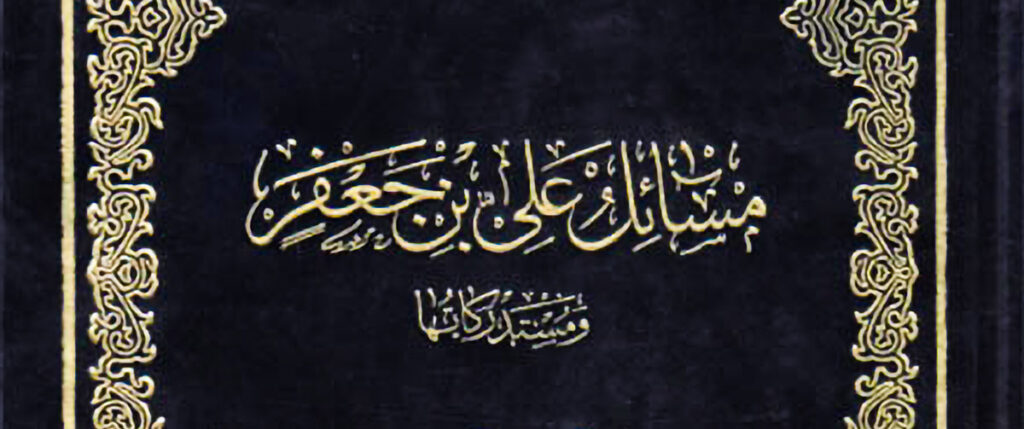 مَسَائِلُ عَلِيّ بْنِ جَعْفَر
وَمُسْتَدْرَكَاتُهَا